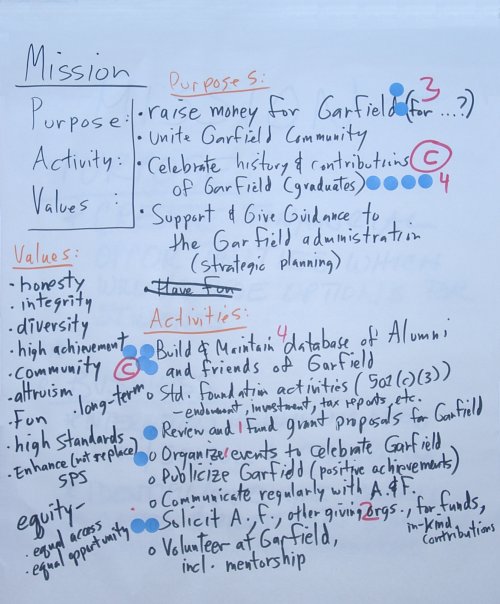 Mission
Purpose:
Activity:
Values:
Purposes:
• raise money for Garfield (for ...?) 3
• Unite Garfield Community
• Celebrate history & contributions C
of Garfield (graduates) 4
• Support & Give Guidance to
the Garfield administration
(strategic planning)
• Have Fun
Values:
• honesty
• integrity
• diversity
• high achievement
• community C
• altruism
• long-term
• Fun
• high standards
• Enhance (not replace)
SPS
equity -
• equal access
• equal opportunity
Activities:
Build & Maintain 4 database of Alumni
and friends of Garfield
o Std. Foundation activities (501(c)(3))
- endowment, investment, tax reports, etc.
Review and 1 fund grant proposals for Garfield
o Organize 1 events to celebrate Garfield
o Publicize Garfield (positive achievements)
o Communicate regularly with A. & F.
Solicit A., F., other giving 2 orgs., for funds,
in-kind
contributions
o Volunteer at Garfield,
incl. mentorship